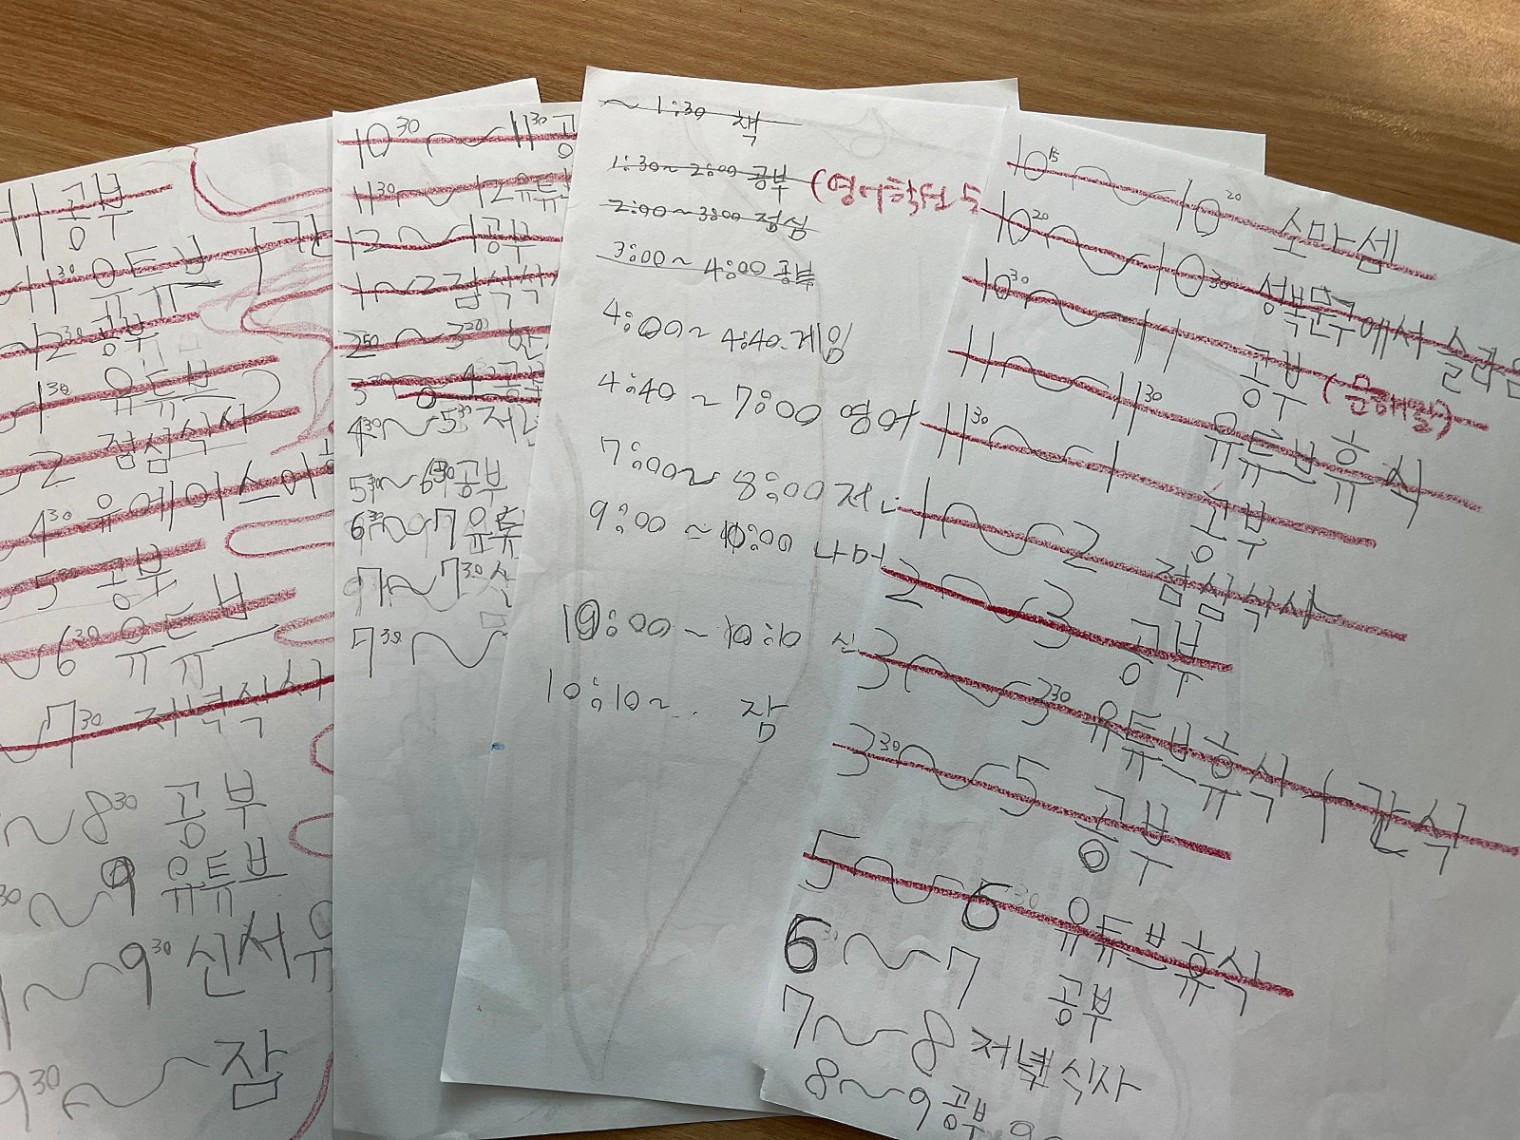 11 공부
11³⁰ 유튜브 + 간
2³⁰ 공부
1³⁰ 유튜브
2 점심식사
4³⁰ 유에이스어
5³⁰ 공부
6³⁰ 유튜브
7³⁰ 저녁식사
~8³⁰ 공부
³⁰~9 유튜브
~9³⁰ 신서유
9³⁰~잠
10³⁰~11³⁰ 공
11³⁰~12 유튜브
12~1 공부
1~2 점심식사
2⁵⁰~3²⁰
공부
4³⁰~5³⁰ 저녁
5³⁰~6³⁰ 공부
6³⁰~7 유튜
7~7³⁰ 신
7³⁰~
~1:30 책
1:30~2:00 공부 (영어학원 숙
2:00~3:00 점심
3:00~4:00 공부
4:00~4:40 게임
4:40~7:00 영어
7:00~8:00 저녁
9:00~10:00 나머
10:00~10:10 신
10:10~.. 잠
10¹⁵~10²⁰ 소마셈
10²⁰~10³⁰ 성북문구에서 슬라임
10³⁰~11 공부 (문해력)
11~11³⁰ 유튜브 휴식
11³⁰~1 공부
1~2 점심식사
2~3 공부
3~3³⁰ 유튜브휴식+간식
3³⁰~5 공부
5~6 유튜브휴식
6~7 공부
7~8 저녁식사
8~9 공부